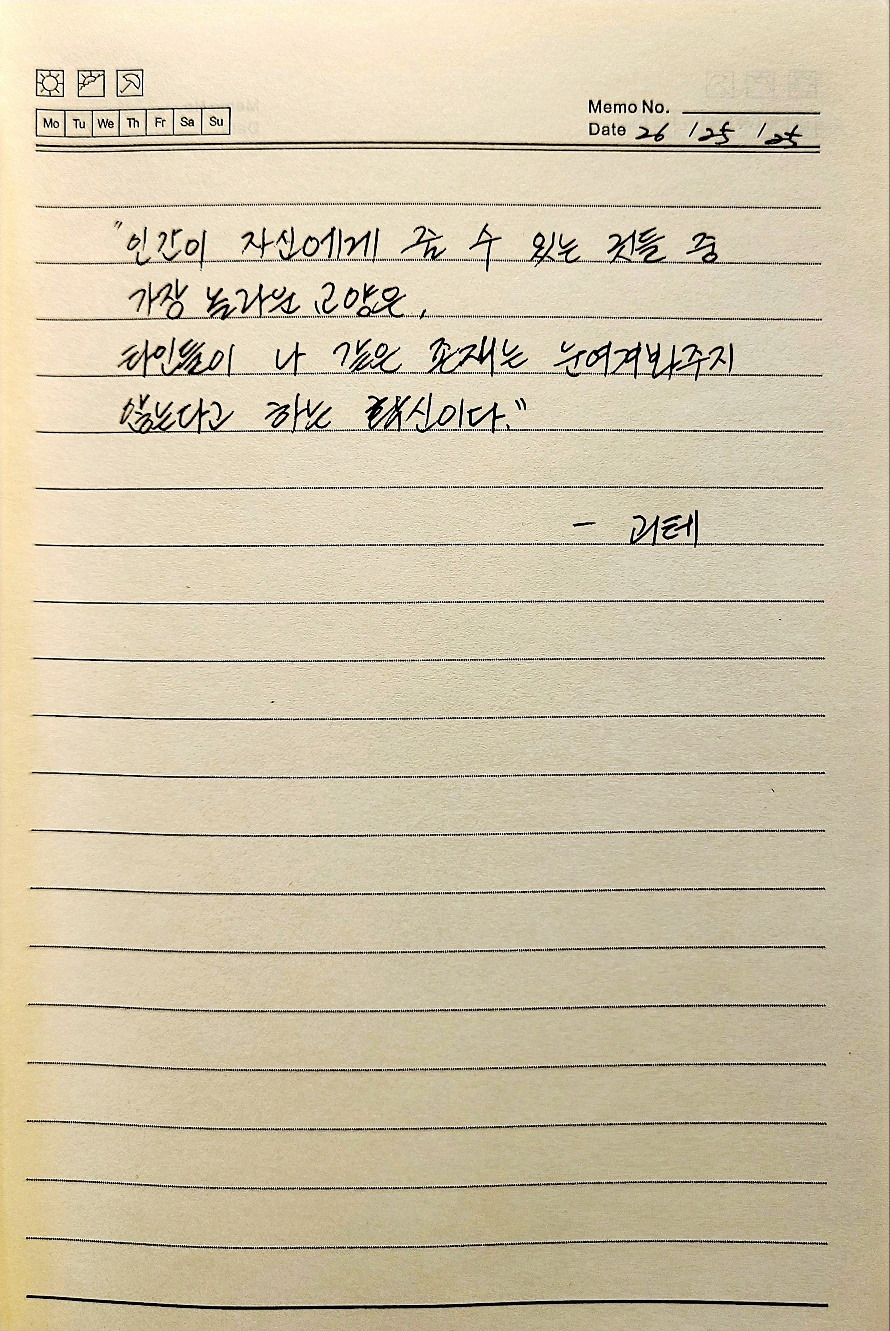 Mo Tu We Th Fr Sa Su
Memo No.
Date 26 / 25 / 25
"인간이 자신에게 줄 수 있는 것들 중
가장 놀라운 교양은,
타인들이 나 같은 존재는 눈여겨봐주지
않는다고 하는 확신이다."
- 괴테